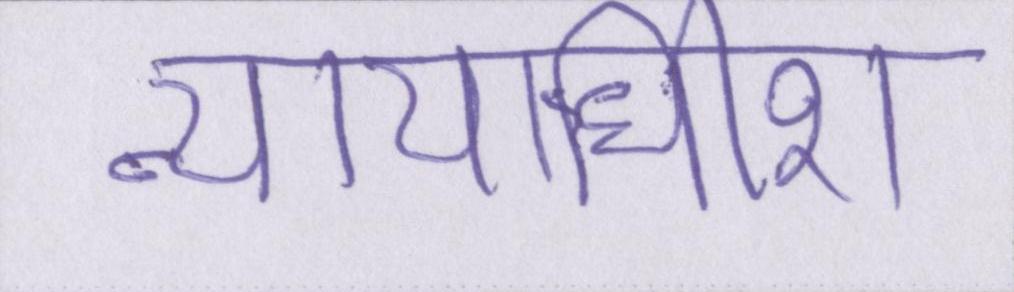 न्यायाधिीश